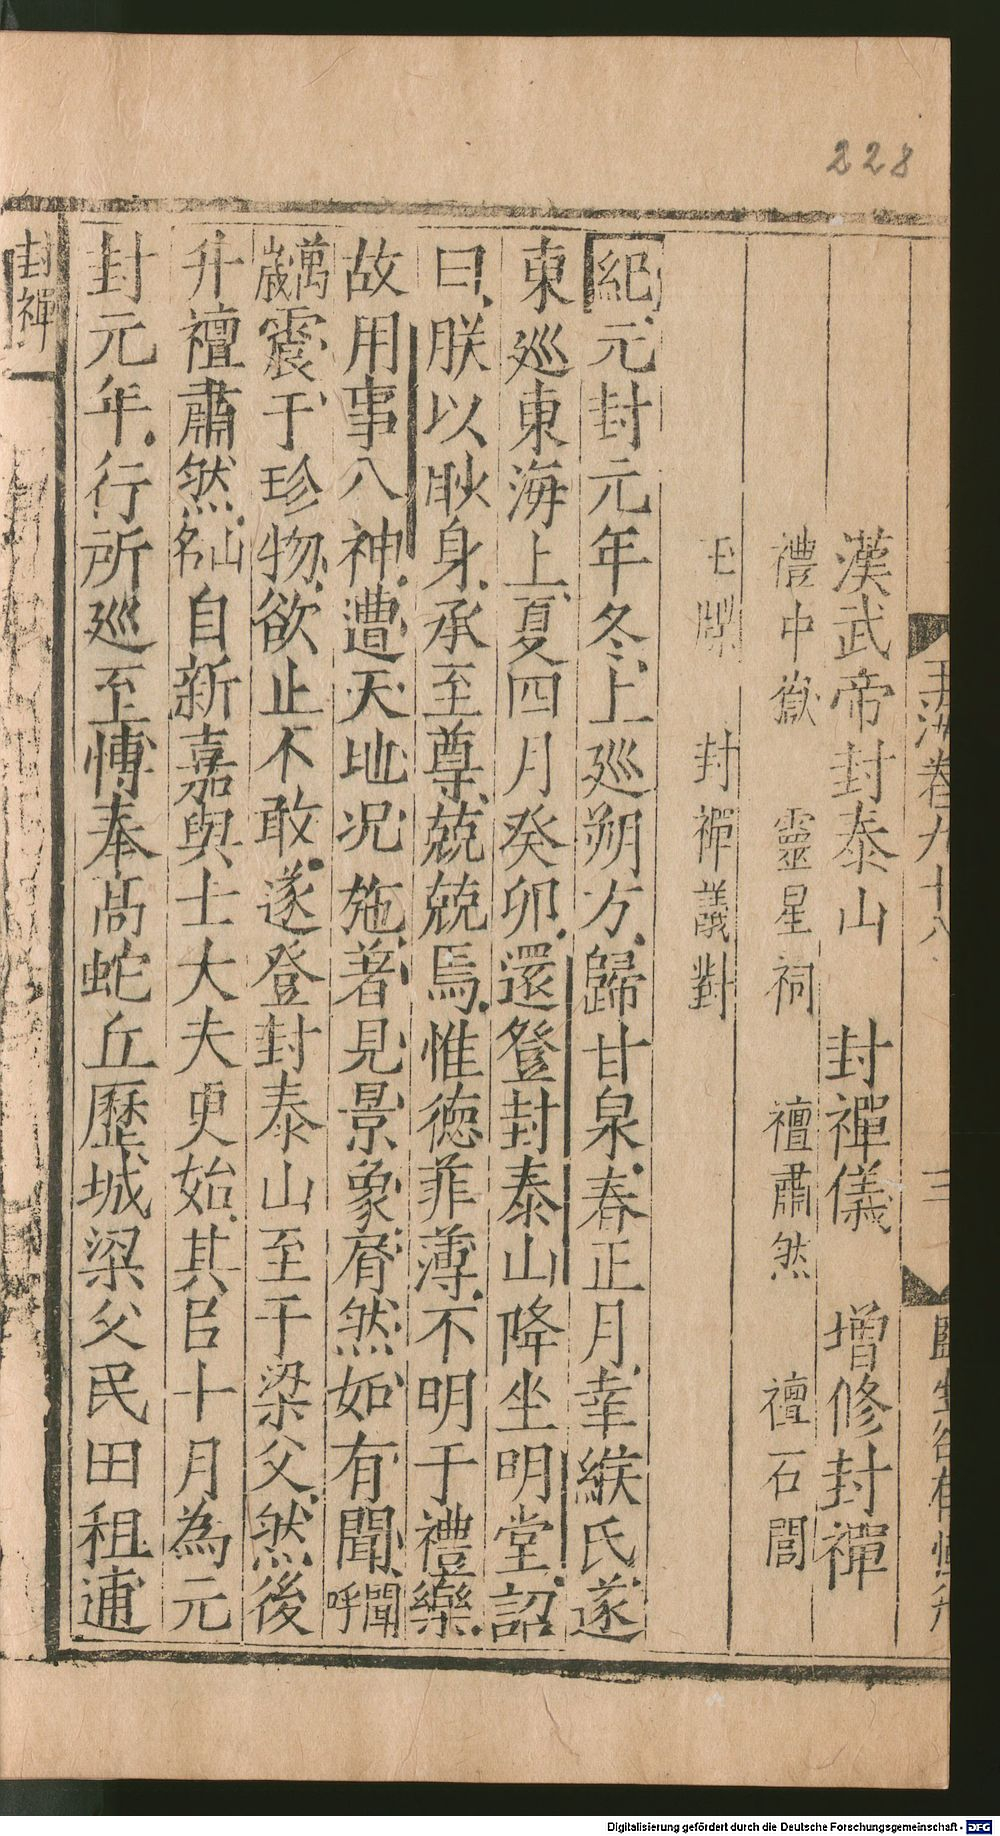 228
玉海卷九十八 三
漢武帝封泰山 封禪儀 增修封禪
禮中嶽 靈星祠 禪肅然 禪石閭
玉牒 封禪議對
紀元封元年冬上巡朔方歸甘泉春正月幸緱氏遂
東巡東海上夏四月癸卯還登封泰山降坐明堂詔
曰朕以眇身承至尊兢兢焉惟德菲薄不明于禮樂
故用事八神遭天地况施著見景象屑然如有聞聞呼
萬歲震于珍物欲止不敢遂登封泰山至于梁父然後
升禮肅然名山自新嘉與士大夫更始其以十月為元
封元年行所巡至愽奉高蛇丘歷城梁父民田租逋
封禪
Digitalisierung gefördert durch die Deutsche Forschungsgemeinschaft - DFG